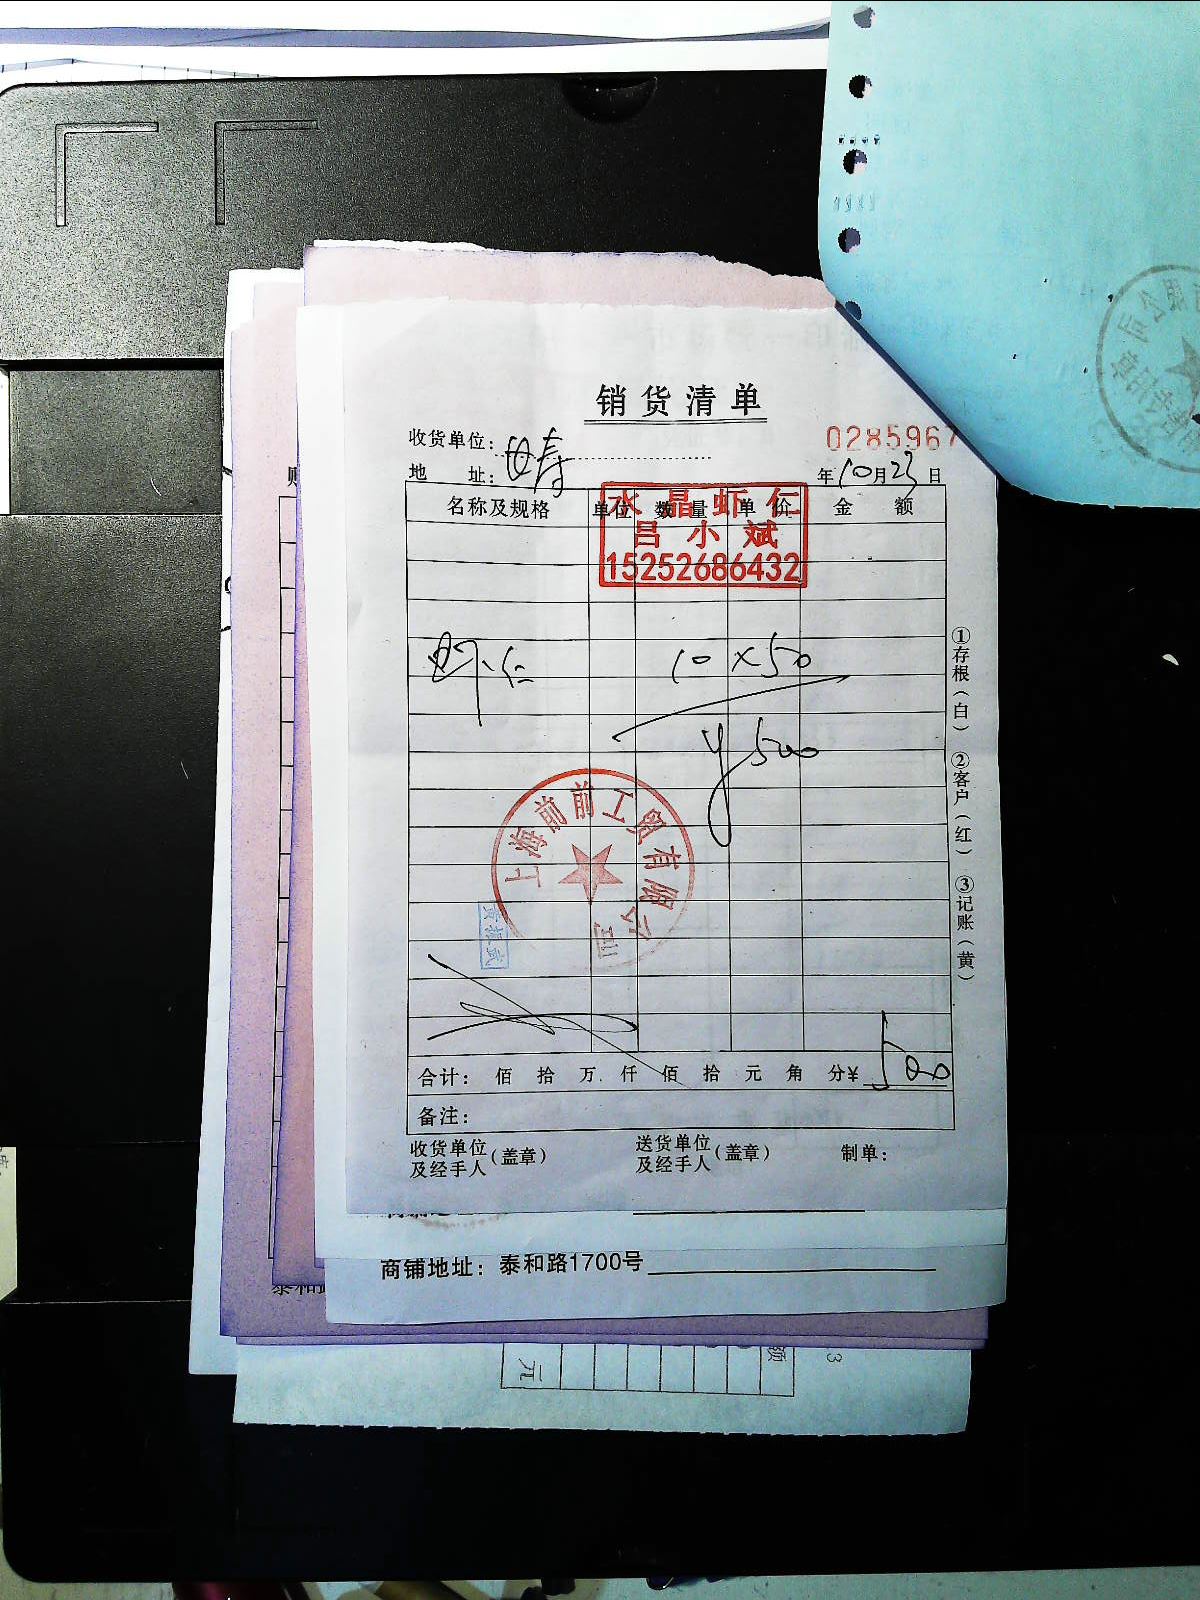 销货清单
收货单位:
0285967
地 址:
年10月23日
名称及规格 单位 数量 单价 金 额
水晶虾仁
吕小斌
15252686432
虾仁 10×50
¥500
上海前前工贸有限公司
黄振武
合计: 佰 拾 万 仟 佰 拾 元 角 分¥ 500
备注:
收货单位及经手人(盖章)
送货单位及经手人(盖章)
制单:
①存根(白) ②客户(红) ③记账(黄)
商铺地址: 泰和路1700号
泰和
额
元
3